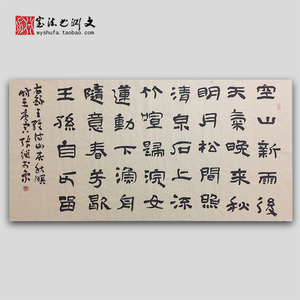 wyshufa.taobao.com
空山新雨後
天氣晚來秋
明月松間照
清泉石上流
竹喧歸浣女
蓮動下漁舟
隨意春芳歇
王孫自可留
王維詩山居秋暝